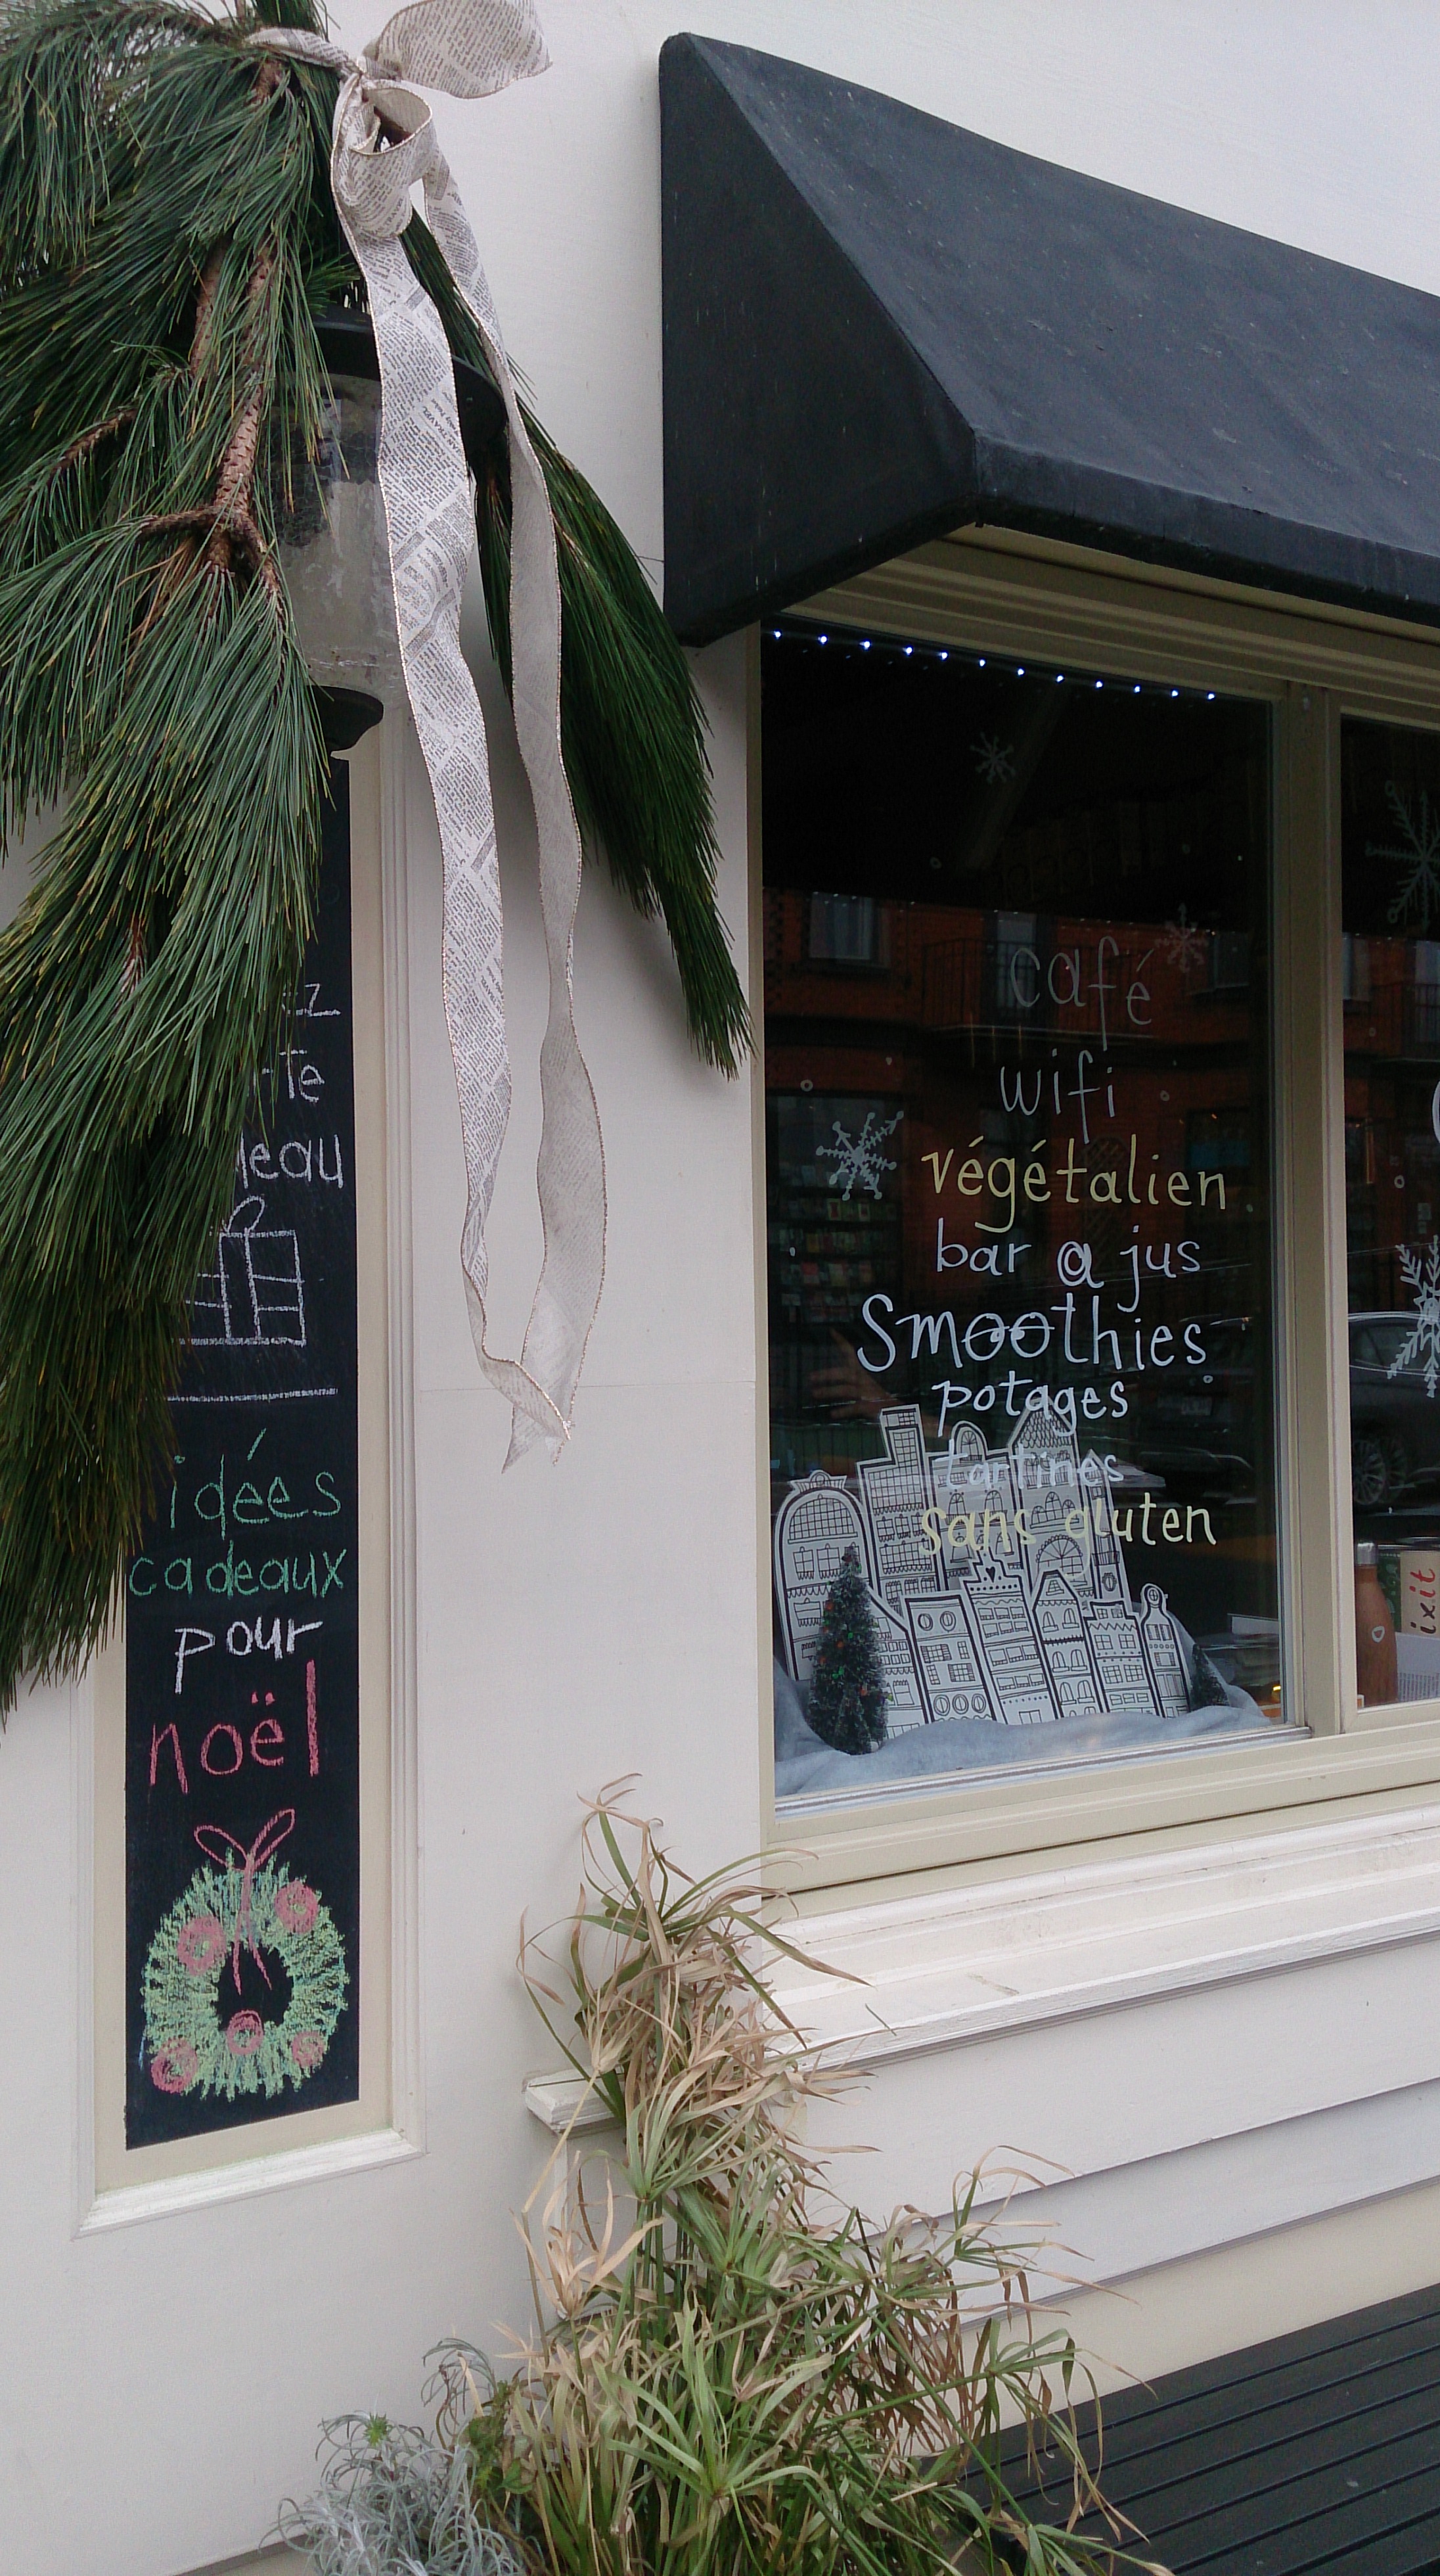 idées
cadeaux
pour
noël
café
wifi
végétalien
bar a jus
Smoothies
potages
tartines
sans gluten